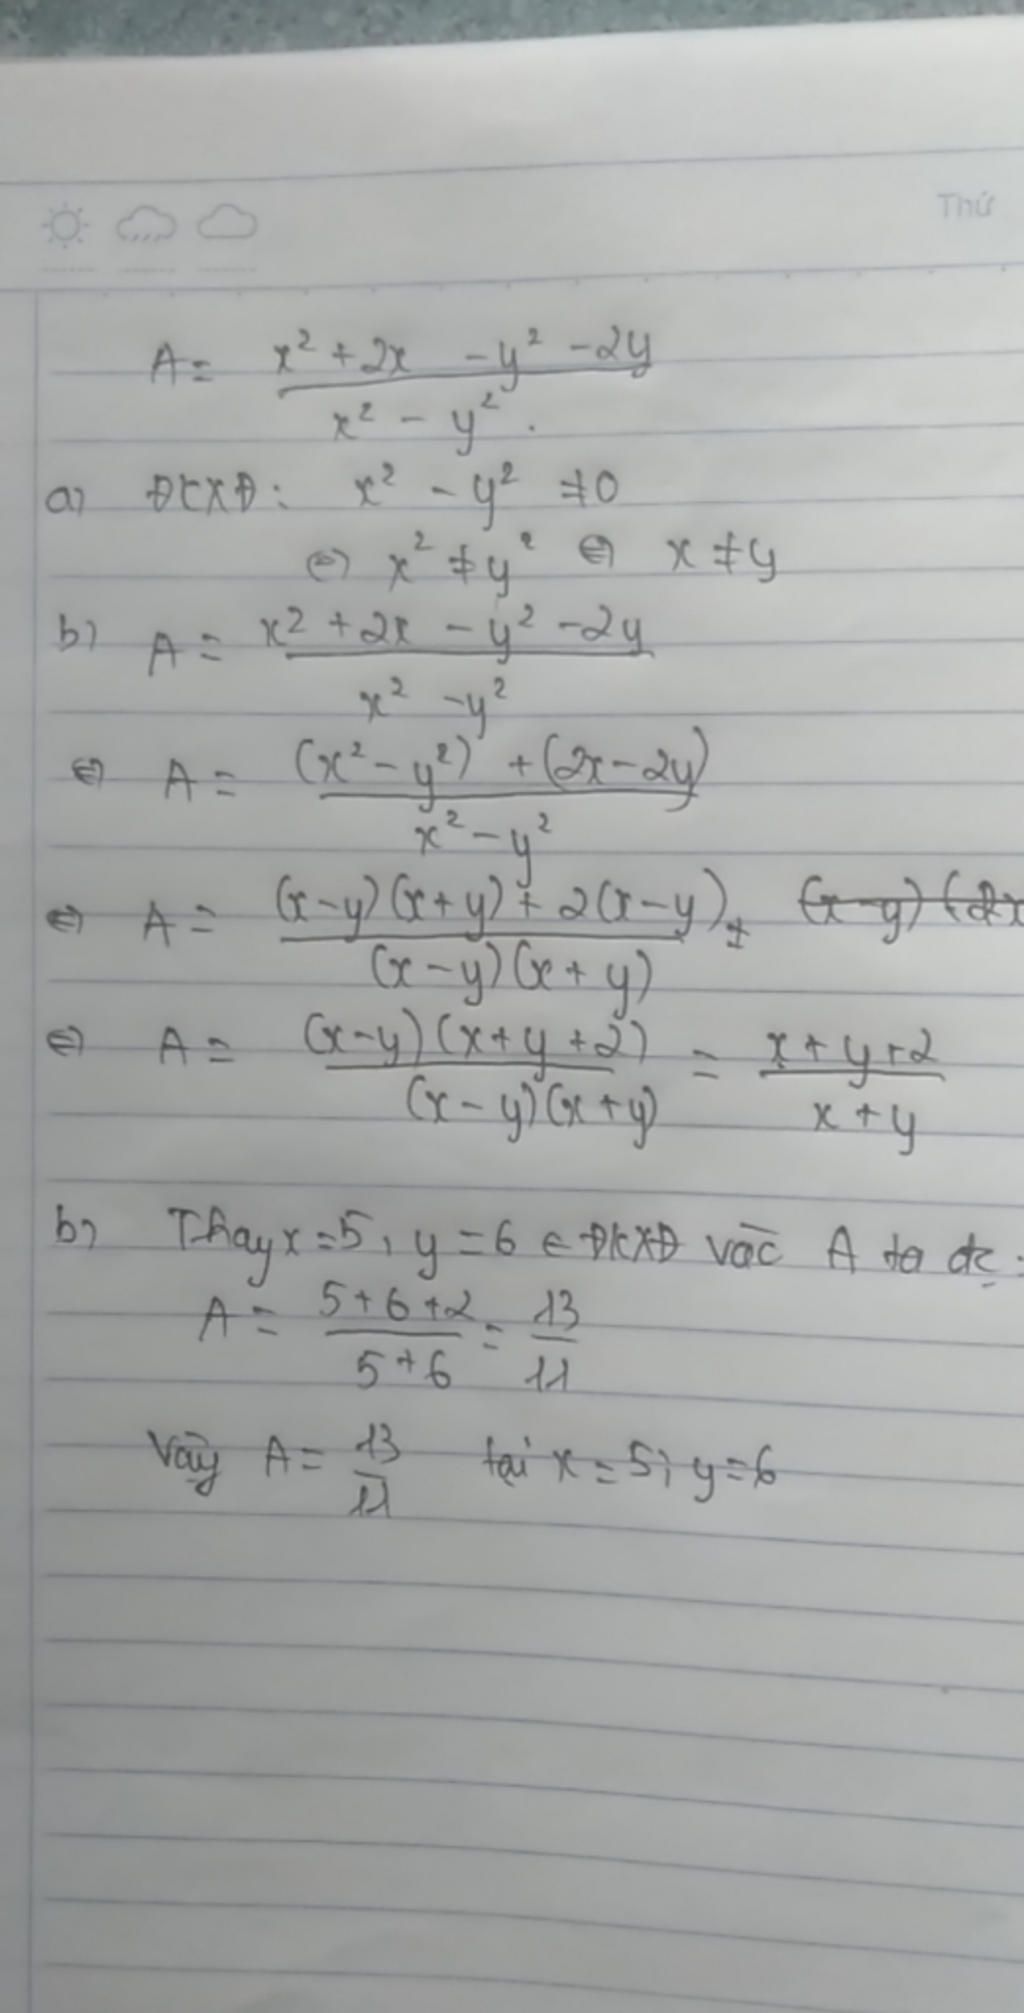 Thứ
A = x² + 2x - y² - 2y
x² - y².
a) ĐKXĐ: x² - y² ≠ 0
⇔ x² ≠ y² ⇔ x ≠ y
b) A = x² + 2x - y² - 2y
x² - y²
⇔ A = (x² - y²) + (2x - 2y)
x² - y²
⇔ A = (x - y)(x + y) + 2(x - y) = (x - y)(2x
(x - y)(x + y)
⇔ A = (x - y)(x + y + 2) = x + y + 2
(x - y)(x + y) x + y
b) Thay x = 5, y = 6 ∈ ĐKXĐ vào A ta đc:
A = 5 + 6 + 2 = 13
5 + 6 11
Vậy A = 13 tại x = 5; y = 6
11